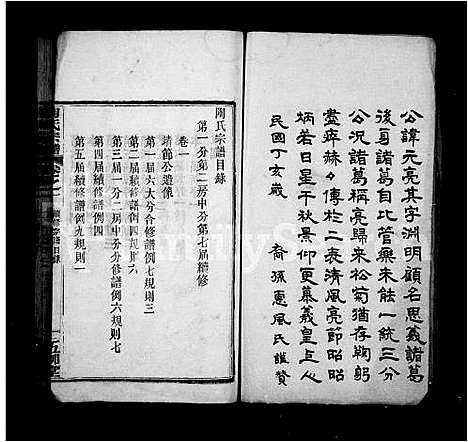 公諱元亮其字淵明顧名思義諸葛
後身諸葛自比管樂未蝕一統三分
公況諸葛稱亮歸來松菊猶存鞠躬
盡瘁赫々傳於二表清風亮節昭昭
炳若日星千秋景仰更慕羲皇上人
民國丁亥歲　裔孫惠風氏謹贊
陶氏宗譜目錄
第一分第二房中分第七届續修
卷一
靖節公遺像
第一届六大分合修譜例七規則三
第二届續修譜例六
第三届一分二房中分修譜例六規則七
第四届續修譜例四
第五届續修譜例九規則一